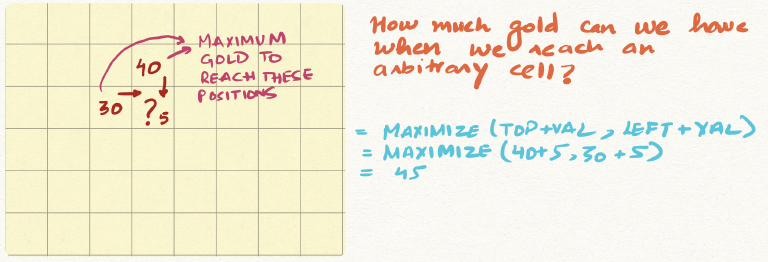 MAXIMUM
GOLD TO
REACH THESE
POSITIONS
40
30
? 5
How much gold can we have
when we reach an
arbitrary cell?
= MAXIMIZE (TOP+VAL, LEFT+VAL)
= MAXIMIZE (40+5, 30+5)
= 45